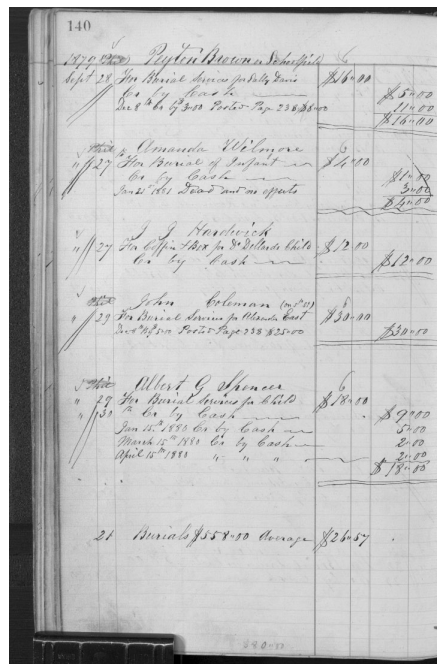 140
1879 Peyton Brown
Sept 28 For Burial Services for Sally Davis $16.00
Cr by Cash $5.00
Dec 8th Cr by 3.00 Posted Page 238 $8.00 11.00
$16.00
Amanda Wilmore
" 27 For Burial of Infant $4.00
Cr by Cash $1.00
Jan 21st 1881 Dead and no effects 3.00
$4.00
J J Hardwick
" 27 For Coffin & Box for Dr Dollards Child $12.00
Cr by Cash $12.00
John Coleman
" 29 For Burial Service for Alexander East $30.00
Cr by 5.00 Posted Page 238 $25.00 $30.00
Albert G Spencer
" 29 For Burial Services for Child $18.00
" 30 Cr by Cash $9.00
Jan 15th 1880 Cr by Cash 5.00
March 15th 1880 Cr by Cash 2.00
April 15th 1880 " " " 2.00
$18.00
21 Burials $558.00 Average $26.57